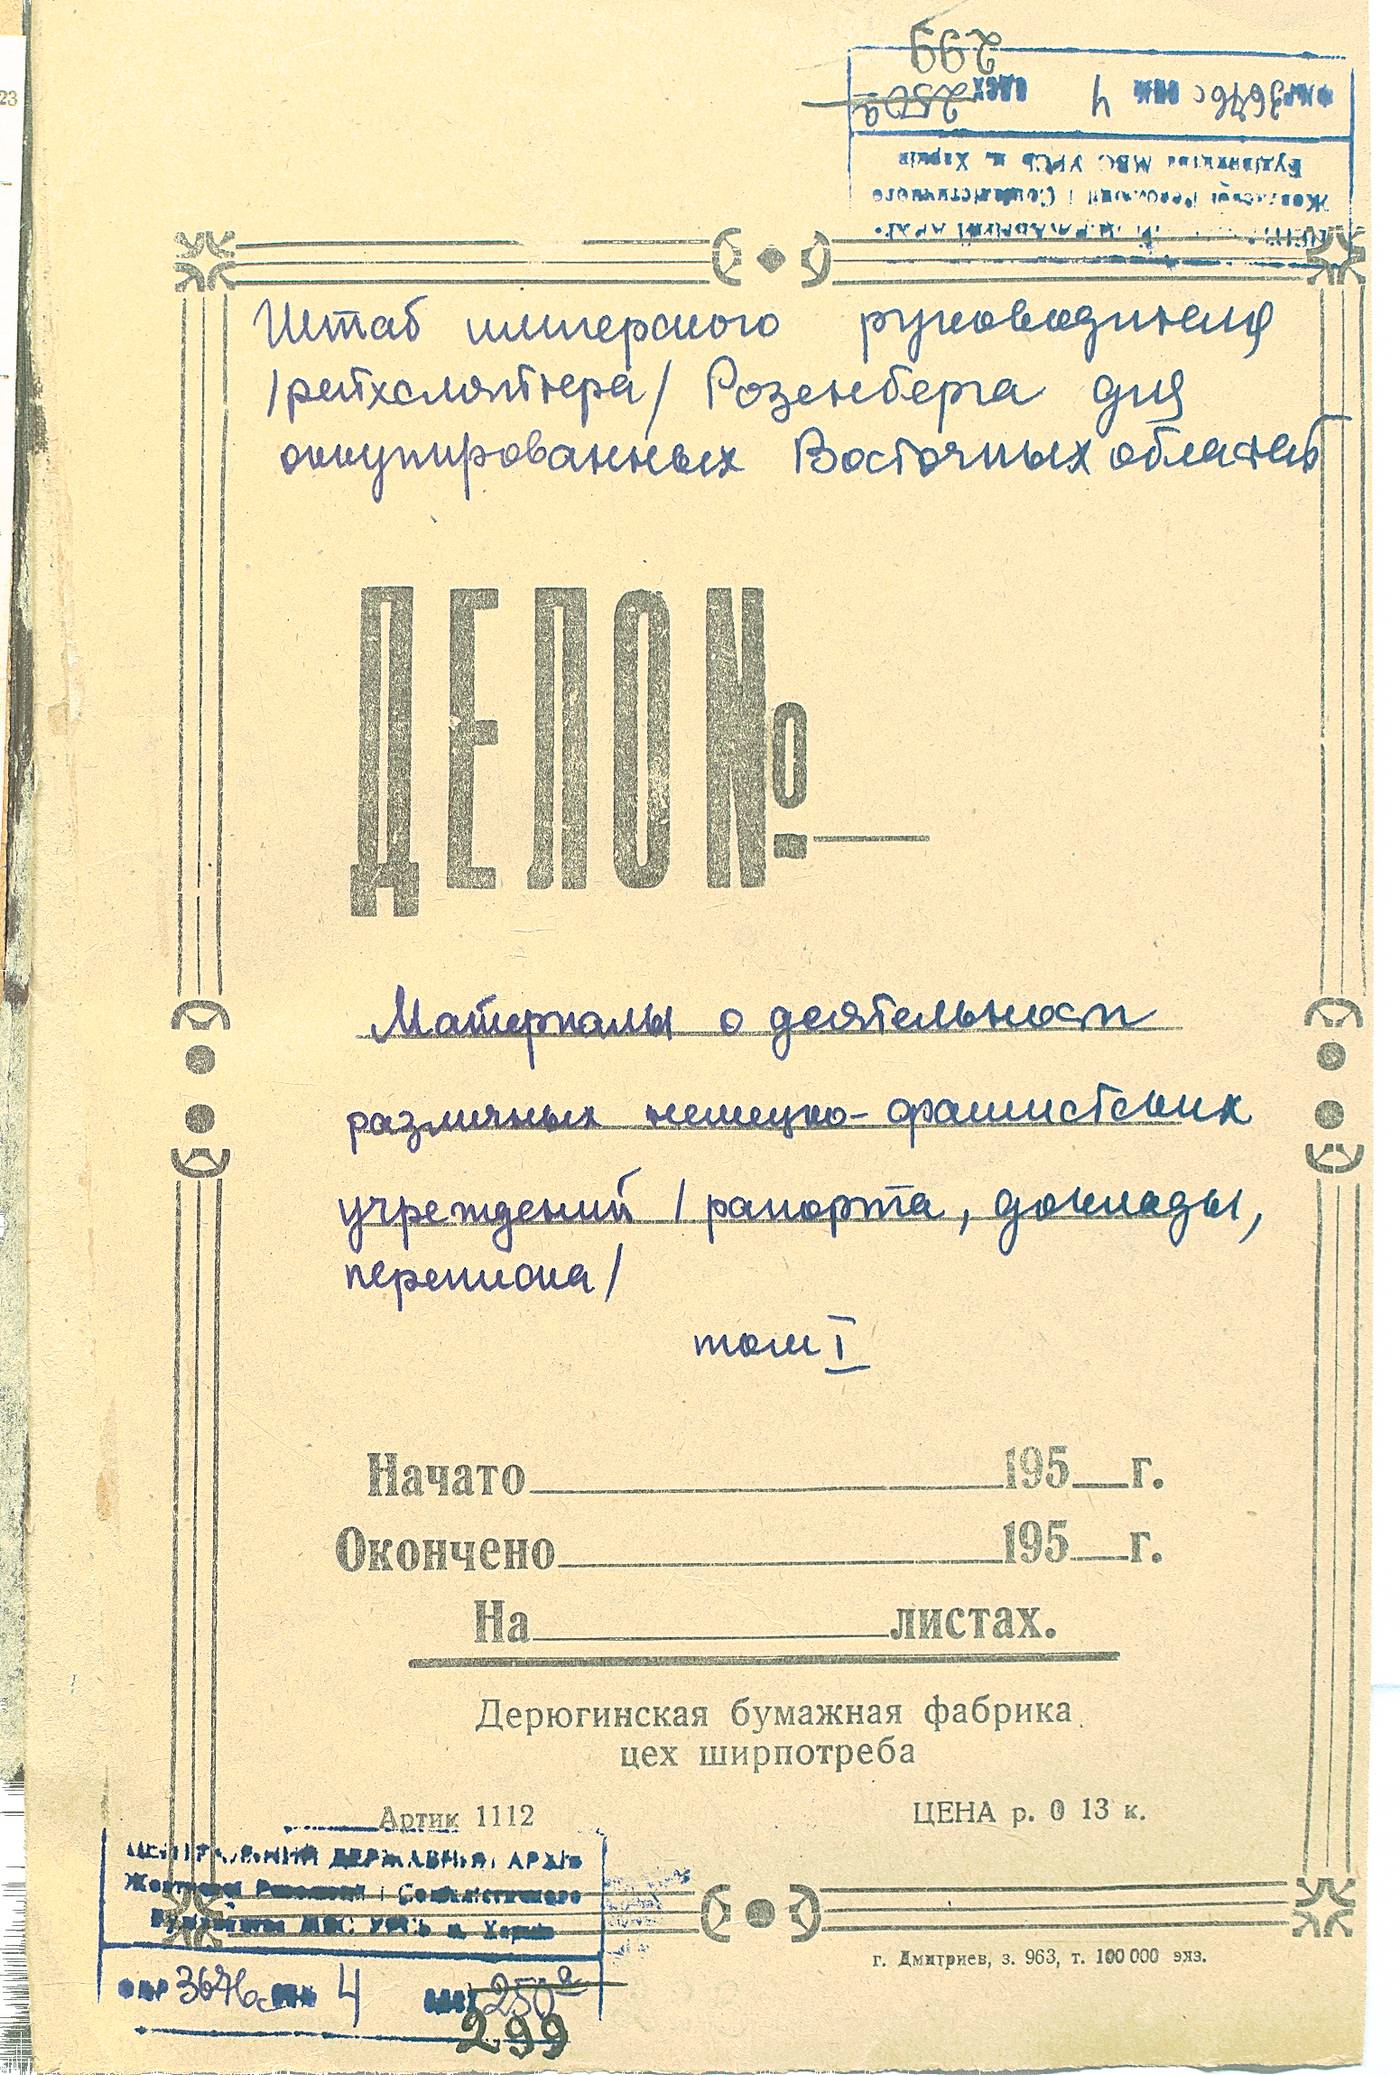 299
ФНР 3676с ОПИС 4 ОДЕХ 250а
Будівництва МВС УРСР м. Харків
Жовтневої Революції і Соціалістичного
Штаб имперского руководителя
/рейхсляйтера/ Розенберга для
оккупированных Восточных областей
ДЕЛО №
Материалы о деятельности
различных немецко-фашистских
учреждений /рапорта, доклады,
переписка/
том I
Начато 195 г.
Окончено 195 г.
На листах.
Дерюгинская бумажная фабрика
цех ширпотреба
Артик 1112 ЦЕНА р. 0 13 к.
ЦЕНТРАЛЬНИЙ ДЕРЖАВНИЙ АРХІВ
Жовтневої Революції і Соціалістичного
Будівництва МВС УРСР м. Харків
г. Дмитриев, з. 963, т. 100 000 экз.
3676с 4 250а
299